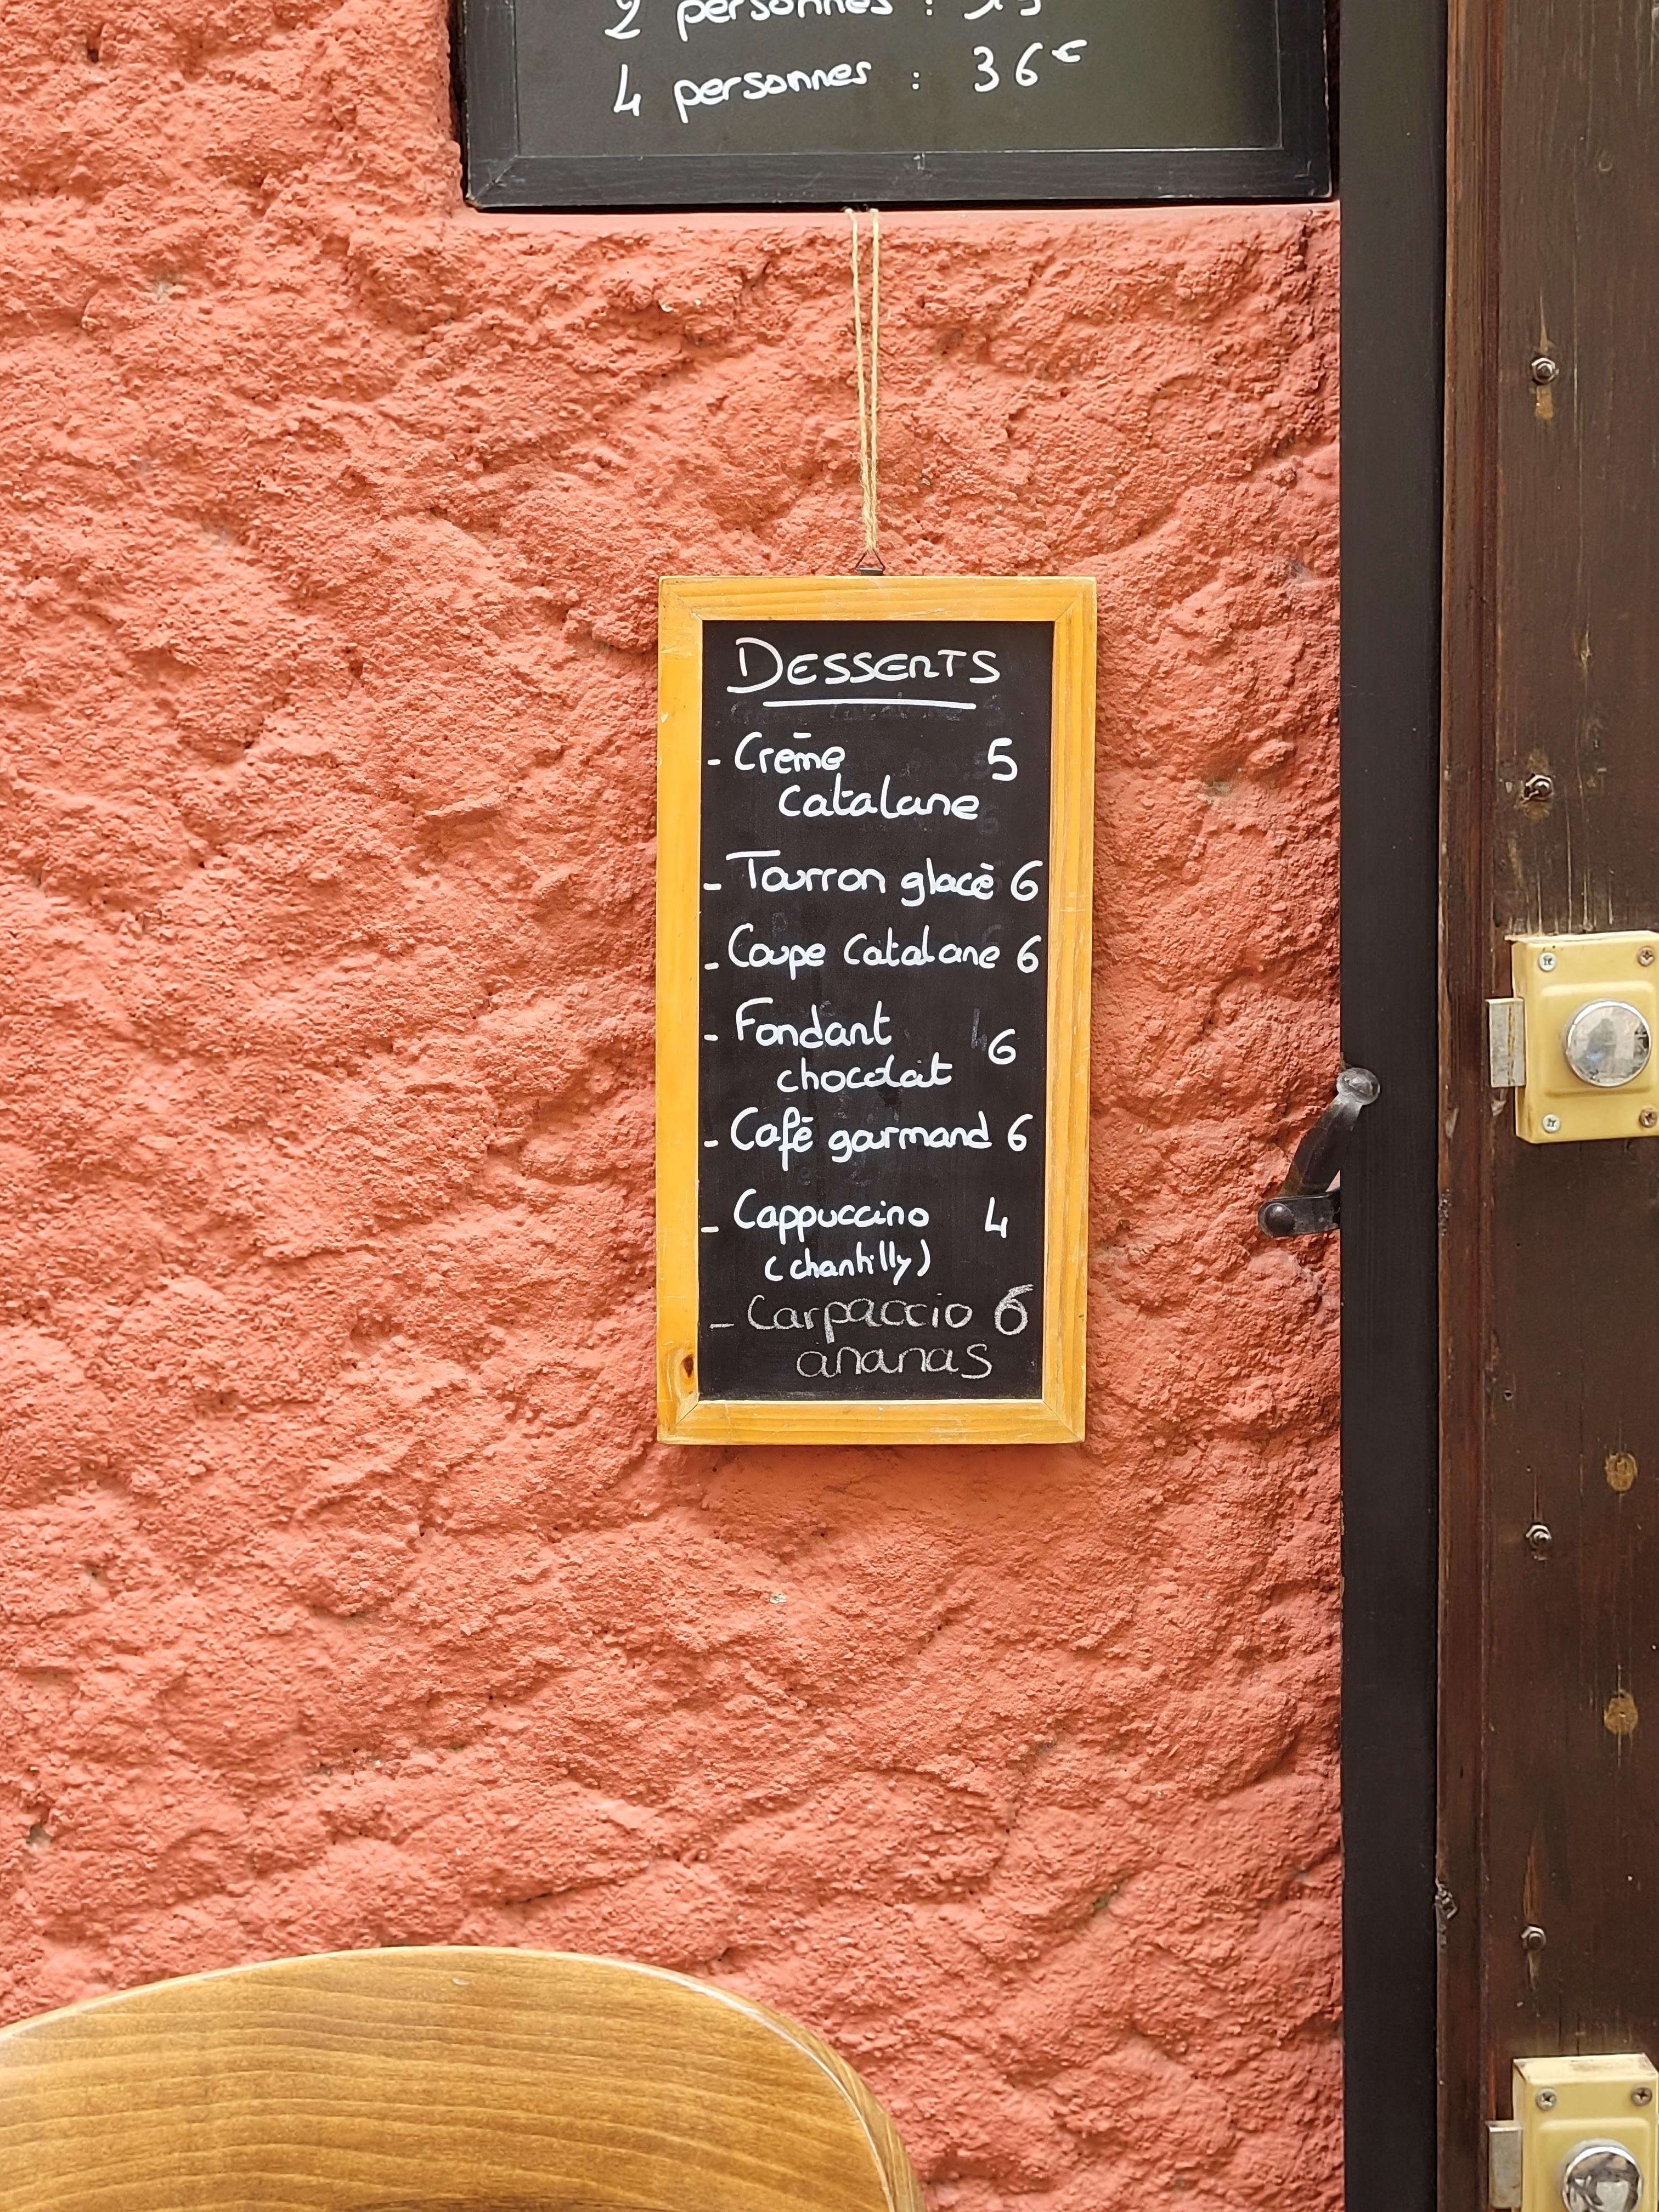 2 personnes :
4 personnes : 36€
DESSERTS
- Crème 5
Catalane
- Tourron glacé 6
- Coupe Catalane 6
- Fondant
chocolat 6
- Café gourmand 6
- Cappuccino 4
(chantilly)
- Carpaccio 6
ananas